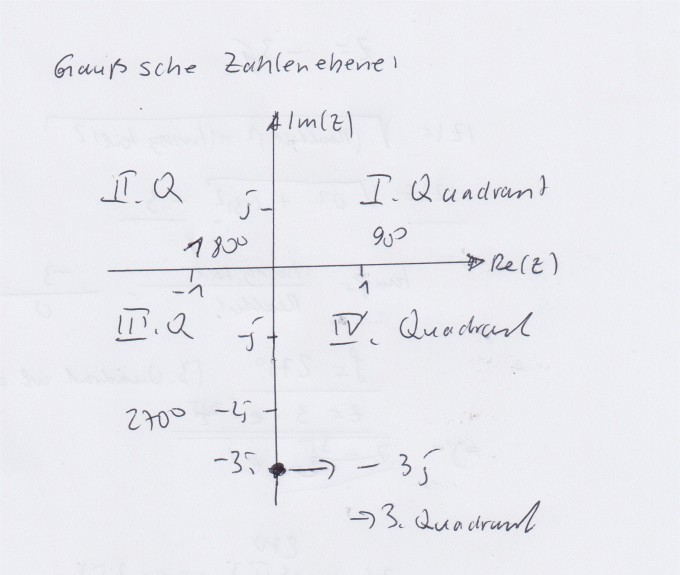 Gaußsche Zahlenebene:
Im(z)
II. Q
I. Quadrant
j
180°
90°
Re(z)
-1
1
III. Q
IV. Quadrant
-j
270°
-2j
-3j
-3j
→ 3. Quadrant